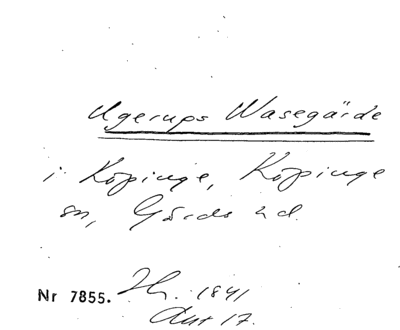 Ugerups Wasegärde
i Köpinge, Köpinge
sn, Gärds hd.
Nr 7855. 1841
17.